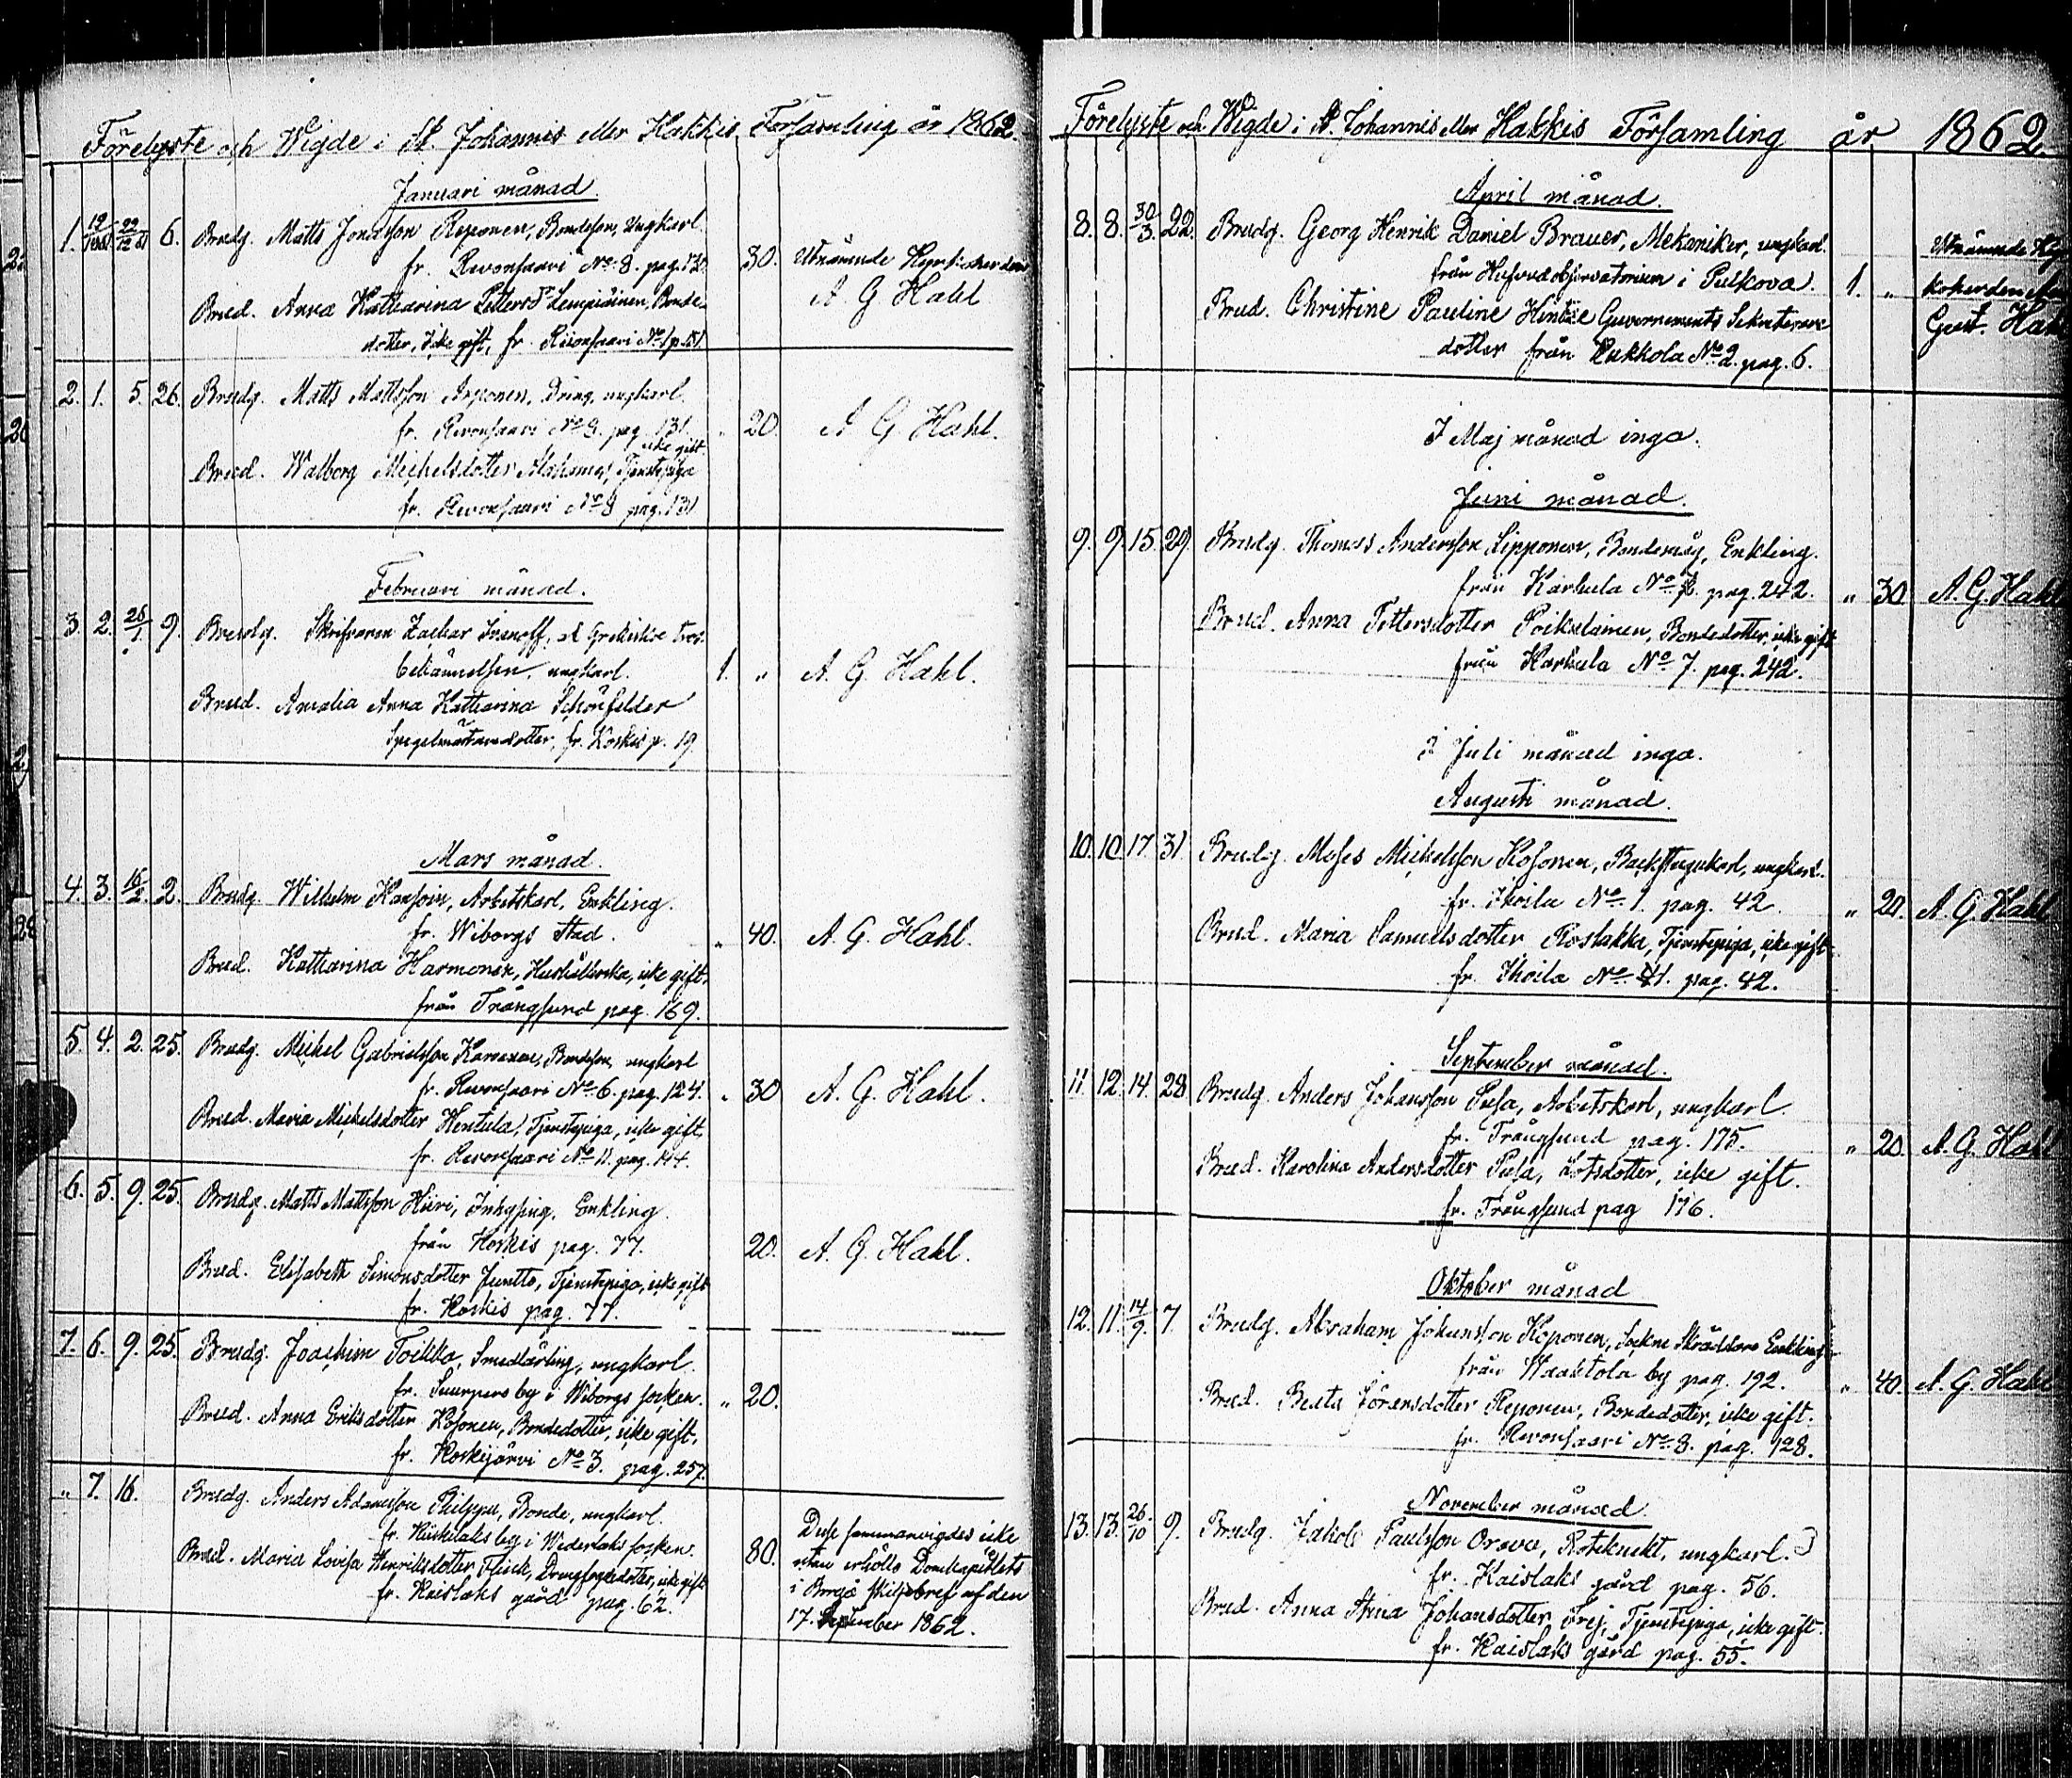 Förelyste och Wigde i St. Johannis eller Kakkis Församling år 1862.
Januari månad.
1. 19/1861 22/12 61 6. Brudg. Matts Jonasson Reponen, Bondeson, Ungkarl.
fr. Revonsaari No 8. pag. 130. 30. Utnämnde Kyrkoherden
A G Hahl
Brud. Anna Katharina Petters Dr Lempiäinen, Bonde-
dotter, icke gift, fr. Revonsaari No 1 p.
2. 1. 5. 26. Brudg. Matts Mattsson Reponen, Dräng, ungkarl.
fr. Revonsaari No 8. pag. 131. " 20. A G. Hahl.
icke gift.
Brud. Walborg Michelsdotter, Tjenstepiga
fr. Revonsaari No 8 pag. 131
Februari månad.
3. 2. 26/1. 9. Brudg. Skrifvaren Zachar Ivanoff, af Grekiska tros-
bekännelsen, ungkarl. 1. " A. G. Hahl.
Brud. Amalia Anna Katharina Schönfelder
dotter, fr. Koskis p. 19
Mars månad.
4. 3. 16/2. 2. Brudg. Wilhelm Hansoin, Arbetskarl, Enkling.
fr. Wiborgs Stad. " 40. A. G. Hahl.
Brud. Katharina Harmonen, Hushållerska, icke gift,
från Trångsund pag. 169.
5. 4. 2. 25. Brudg. Michel Gabrielsson, Bondeson, ungkarl
fr. Revonsaari No 6. pag. 124. " 30 A. G. Hahl.
Brud. Maria Michelsdotter Hentula, Tjenstepiga, icke gift,
fr. Revonsaari No 11. pag. 144.
6. 5. 9. 25. Brudg. Matts Mattsson Hiiri, Inhysing, Enkling.
från Koskis pag. 77. 20. A. G. Hahl.
Brud. Elisabeth Simonsdotter Juntto, Tjenstepiga, icke gift
fr. Koskis pag. 77.
7. 6. 9. 25. Brudg. Joachim Toikka, Smedlärling, ungkarl.
fr. Suurpero by i Wiborgs socken. " 20.
Brud. Anna Eriksdotter Kosonen, Bondedotter, icke gift,
fr. Koskijärvi No 3. pag. 257.
" 7. 16. Brudg. Anders Adamsson Philppu, Bonde, ungkarl.
fr. by i Wederlaks socken. 80. Desse sammanvigdes icke
utan erhöllo Domkapitlets
i Borgå skiljobref af den
17. September 1862.
Brud. Maria Lovisa Henriksdotter Flick, dotter, icke gift
fr. Kaislaks gård pag. 62.
Förelyste och Wigde i St. Johannis eller Kakkis Församling år 1862.
April månad.
8. 8. 30/3. 22. Brudg. Georg Henrik Daniel Brauer, Mekaniker, ungkarl.
från Hufvudobservatorium i Pulkova. 1. " Utnämnde Kyr
koherden
Gust. Hahl
Brud. Christine Pauline Hintze Guvernements Sekreterare
dotter från Kukkola No 2. pag. 6.
I Maj månad inga.
Juni månad.
9. 9. 15. 29. Brudg. Thomas Andersson Sipponen, Bondemåg, Enkling.
från Karhula No 7. pag. 242. " 30 A. G. Hahl
Brud. Anna Pettersdotter Poikelainen, Bondedotter, icke gift
från Karhula No 7. pag. 242.
i Juli månad inga.
Augusti månad.
10. 10. 17 31. Brudg. Moses Michelsson Kosonen, Backstugukarl, ungkarl.
fr. Ihoila No 1. pag. 42. " 20. A. G. Hahl
Brud. Maria Samuelsdotter Roslakka, Tjenstepiga, icke gift
fr. Ihoila No 1. pag. 42.
September månad.
11. 12. 14. 28 Brudg. Anders Johansson Pusa, Arbetskarl, ungkarl.
fr. Trångsund pag. 175. " 20 A. G. Hahl
Brud. Karolina Andersdotter Pusa, Lotsdotter, icke gift.
fr. Trångsund pag 176.
Oktober månad
12. 11. 14/9. 7. Brudg. Abraham Johansson Koponen, Sockne Skräddare Enkling
från Waaktola by pag. 192. " 40. A. G. Hahl
Brud. Beata Jöransdotter Reponen, Bondedotter, icke gift.
fr. Revonsaari No 8. pag. 128.
November månad.
13. 13. 26/10 9. Brudg. Jakob Paulsson Orava, Roteknekt, ungkarl.
fr. Kaislaks gård pag. 56.
Brud. Anna Stina Johansdotter Frej, Tjenstepiga, icke gift.
fr. Kaislaks gård pag. 55.